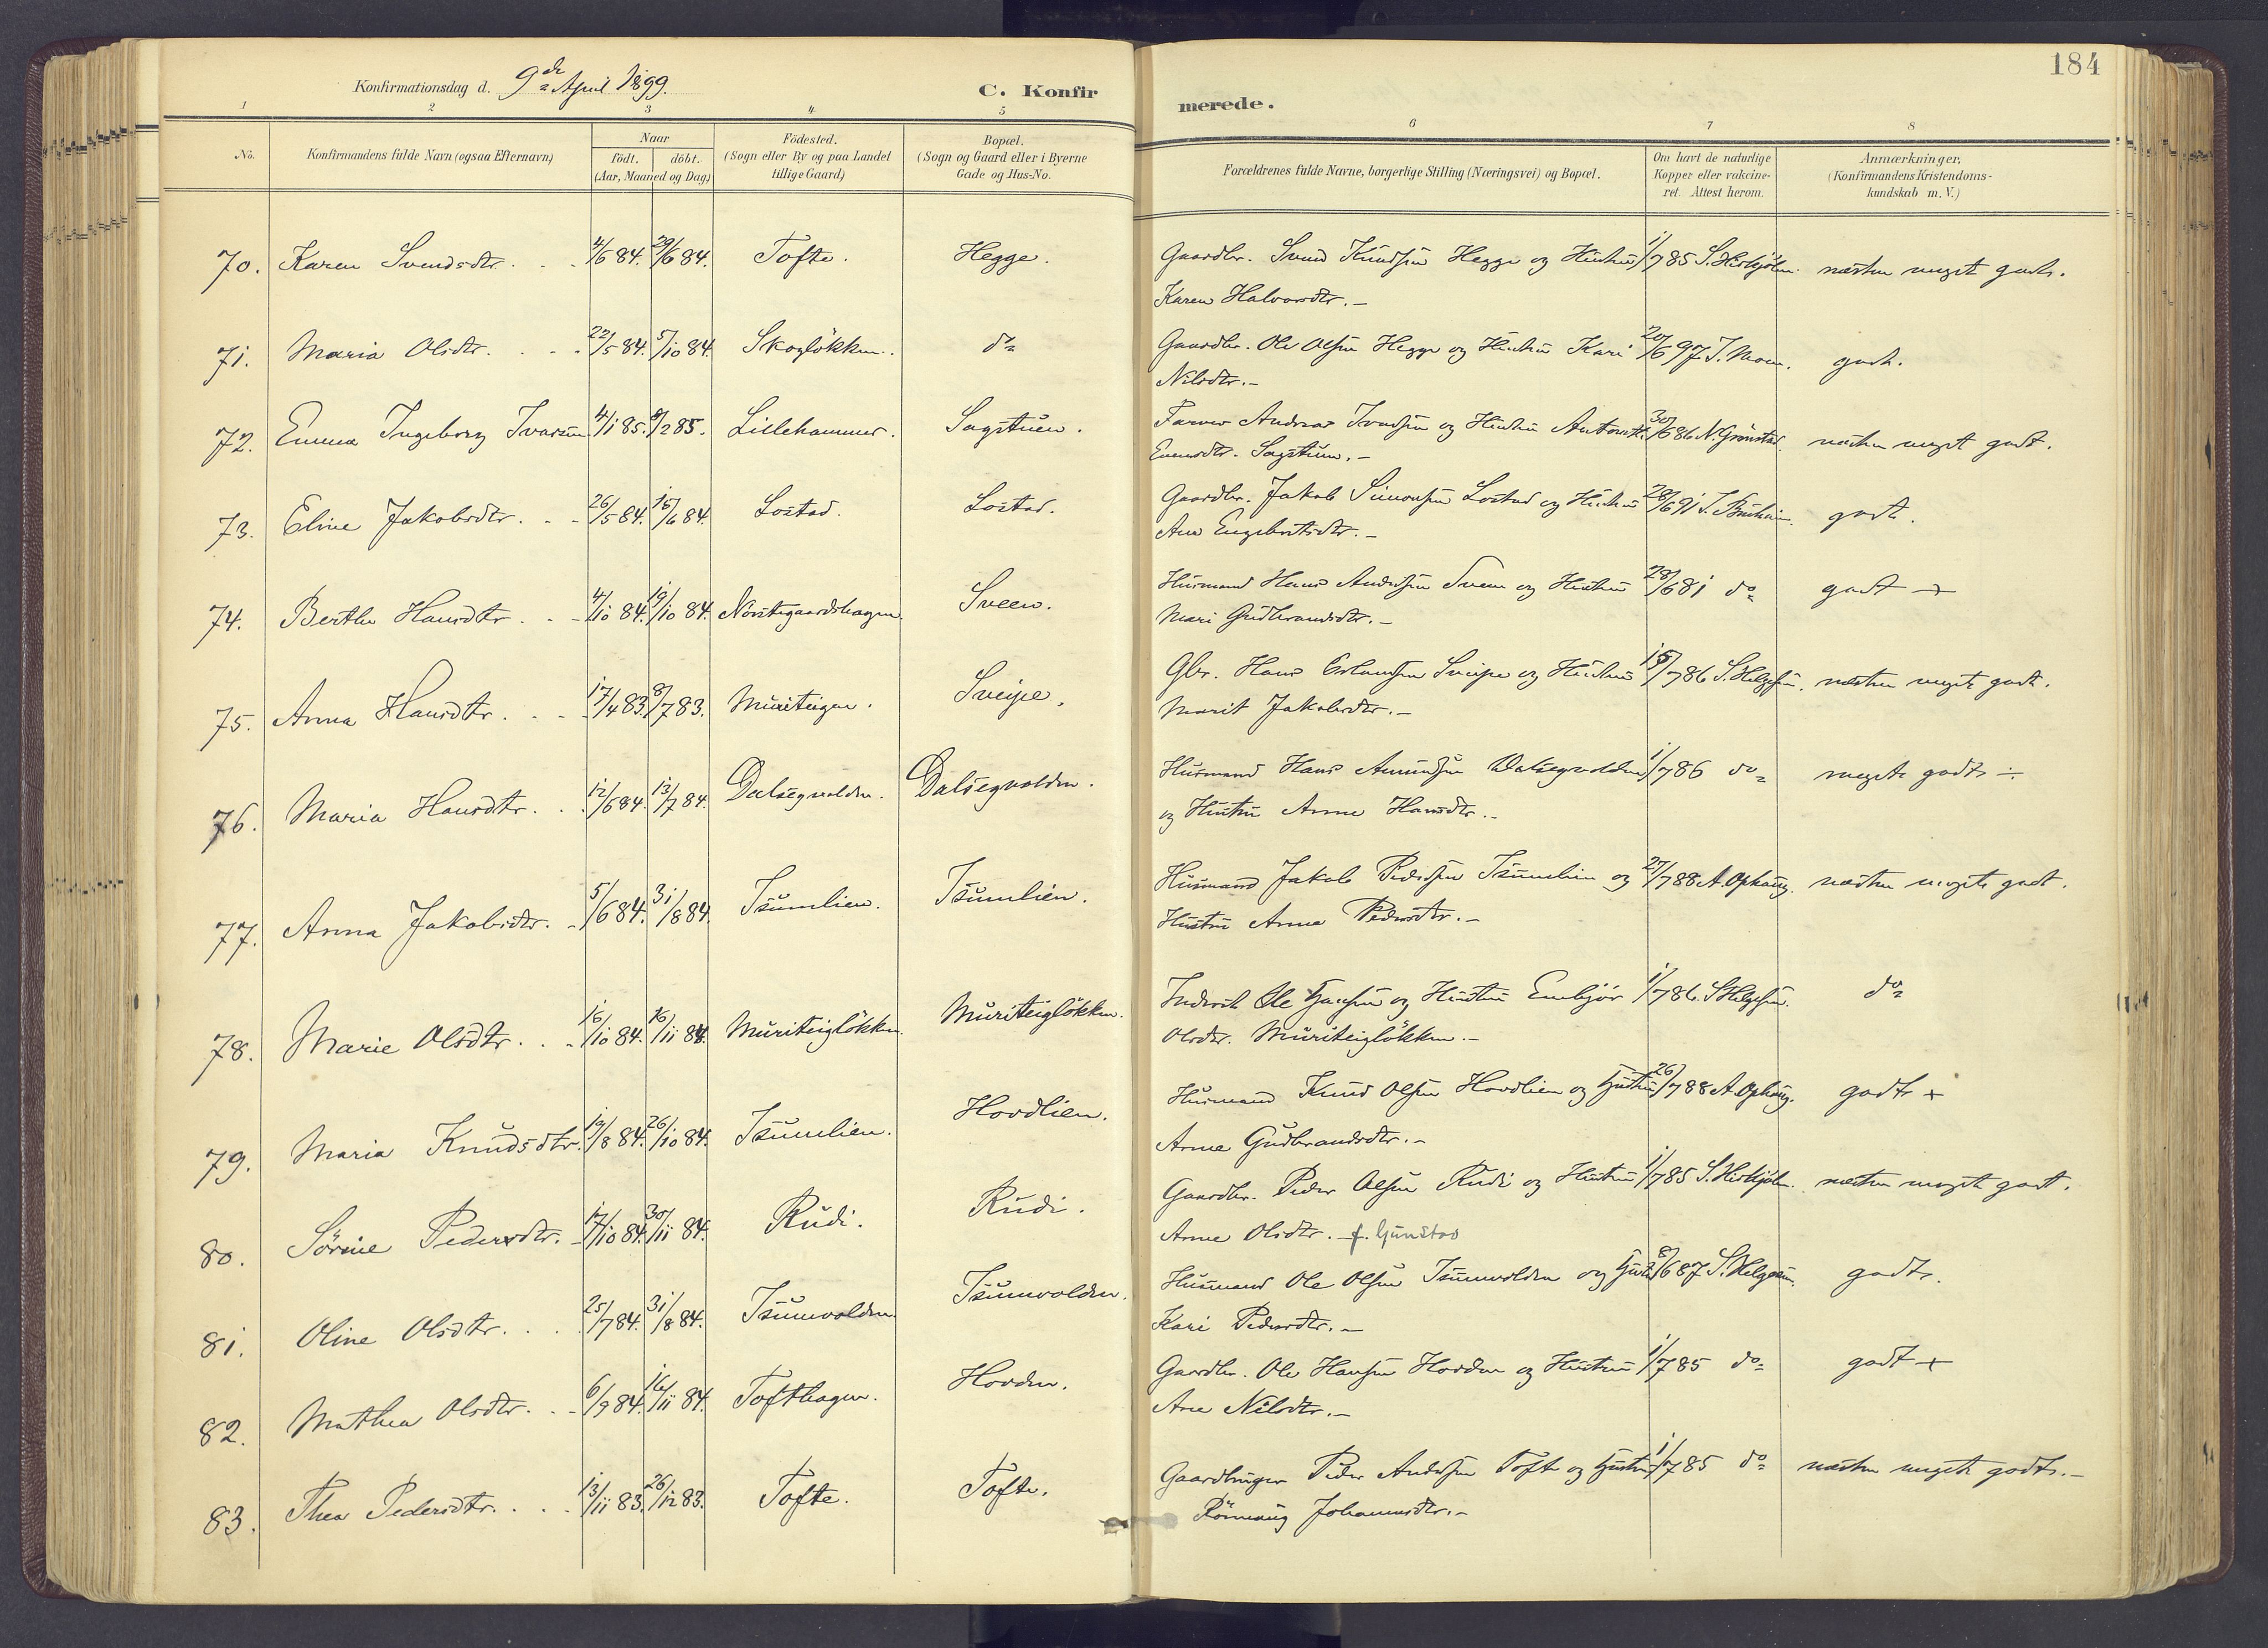 184
Konfirmationsdag d. 9de April 1899.
C. Konfirmerede.
1 2 3 4 5 6 7 8
No. Konfirmandens fulde Navn (ogsaa Efternavn) Naar födt. döbt. (Aar, Maaned og Dag) Födested. (Sogn eller By og paa Landet tillige Gaard) Bopæl. (Sogn og Gaard eller i Byerne Gade og Hus-No. Forældrenes fulde Navne, borgerlige Stilling (Næringsvei) og Bopæl. Om havt de naturlige Kopper eller vakcineret. Attest herom. Anmærkninger. (Konfirmandens Kristendomskundskab m. V.)
70. Karen Svendsdtr. 4/6 84. 29/6 84. Tofte. Hegge. Gaardbr. Svend Knudsen Hegge og Hustru 1/7 85 næsten meget godt.
Karen Halvorsdtr.-
71. Maria Olsdtr. 22/5 84. 5/10 84. Skogløkken. do Gaardbr. Ole Olsen Hegge og Hustru Kari 20/6 97 J. Moen. godt.
Nilsdtr.-
72. Emma Ingeborg Ivarsen 4/1 85. 8/2 85. Lillehammer. Sagstuen. Farver Andreas Ivarsen og Hustru 30/6 86 N. Grønstad. næsten meget godt.
Evensdtr. Sagstuen.-
73. Eline Jakobsdtr. 26/5 84. 15/6 84. Lostad. Lostad. Gaardbr. Jakob Simonsen Lostad og Hustru 28/6 91 godt.
Ane Engebretsdtr.-
74. Berthe Hansdtr. 4/10 84. 19/10 84. Nordstegaardshagen. Sveen. Husmand Hans Andersen Sveen og Hustru 28/6 81 do godt +
Mari Gudbrandsdtr.-
75. Anna Hansdtr. 17/4 83. 8/7 83. Muriteigen. Sveipe. Gbr. Hans Erlandsen Sveipe og Hustru 15/7 86 S. Helgesen. næsten meget godt.
Marit Jakobsdtr.-
76. Maria Hansdtr. 12/6 84. 13/7 84. Dalsegvolden. Dalsegvolden. Husmand Hans Amundsen Dalsegvolden 1/7 86 do meget godt ÷
og Hustru Anne Hansdtr.-
77. Anna Jakobsdtr. 5/6 84. 31/8 84. Isumlien. Isumlien. Husmand Jakob Pedersen Isumlien og 27/7 88 A. Ophaug. næsten meget godt.
Hustru Anne Pedersdtr.-
78. Marie Olsdtr. 16/10 84. 16/11 84. Muriteigløkken. Muriteigløkken. Inderst Ole Hansen og Hustru Embjør 1/7 86. S. Helgesen. do
Olsdtr. Muriteigløkken.-
79. Maria Knudsdtr. 19/8 84. 26/10 84. Isumlien. Hovdlien. Husmand Knud Olsen Hovdlien og Hustru 26/7 88 A. Ophaug. godt +
Anne Gudbrandsdtr.-
80. Sørine Pedersdtr. 17/10 84. 30/11 84. Rudi. Rudi. Gaardbr. Peder Olsen Rudi og Hustru 1/7 85 næsten meget godt.
Anne Olsdtr. - f. Gunstad
81. Oline Olsdtr. 25/7 84. 31/8 84. Isumvolden. Isumvolden. Husmand Ole Olsen Isumvolden og Hustru 8/6 87 S. Helgesen. godt.
Kari Pedersdtr.-
82. Mathea Olsdtr. 6/9 84. 16/11 84. Tofthagen. Hovden. Gaardbr. Ole Hansen Hovden og Hustru 1/7 85 do godt +
Ane Nilsdtr.-
83. Thea Pedersdtr. 13/11 83. 26/12 83. Tofte. Tofte. Gaardbruger Peder Andersen Tofte og Hustru 1/7 85 do næsten meget godt.-
Rønnaug Johannesdtr.-